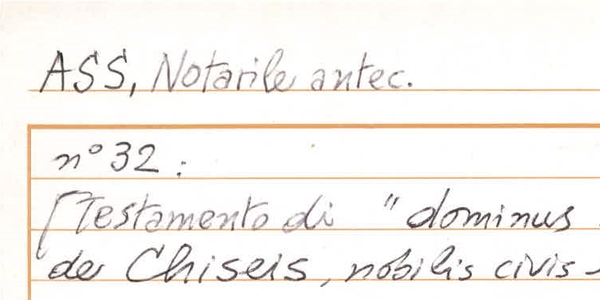 ASS, Notarile antec.
n° 32 :
[Testamento di "dominus
de Chiseis, nobilis civis